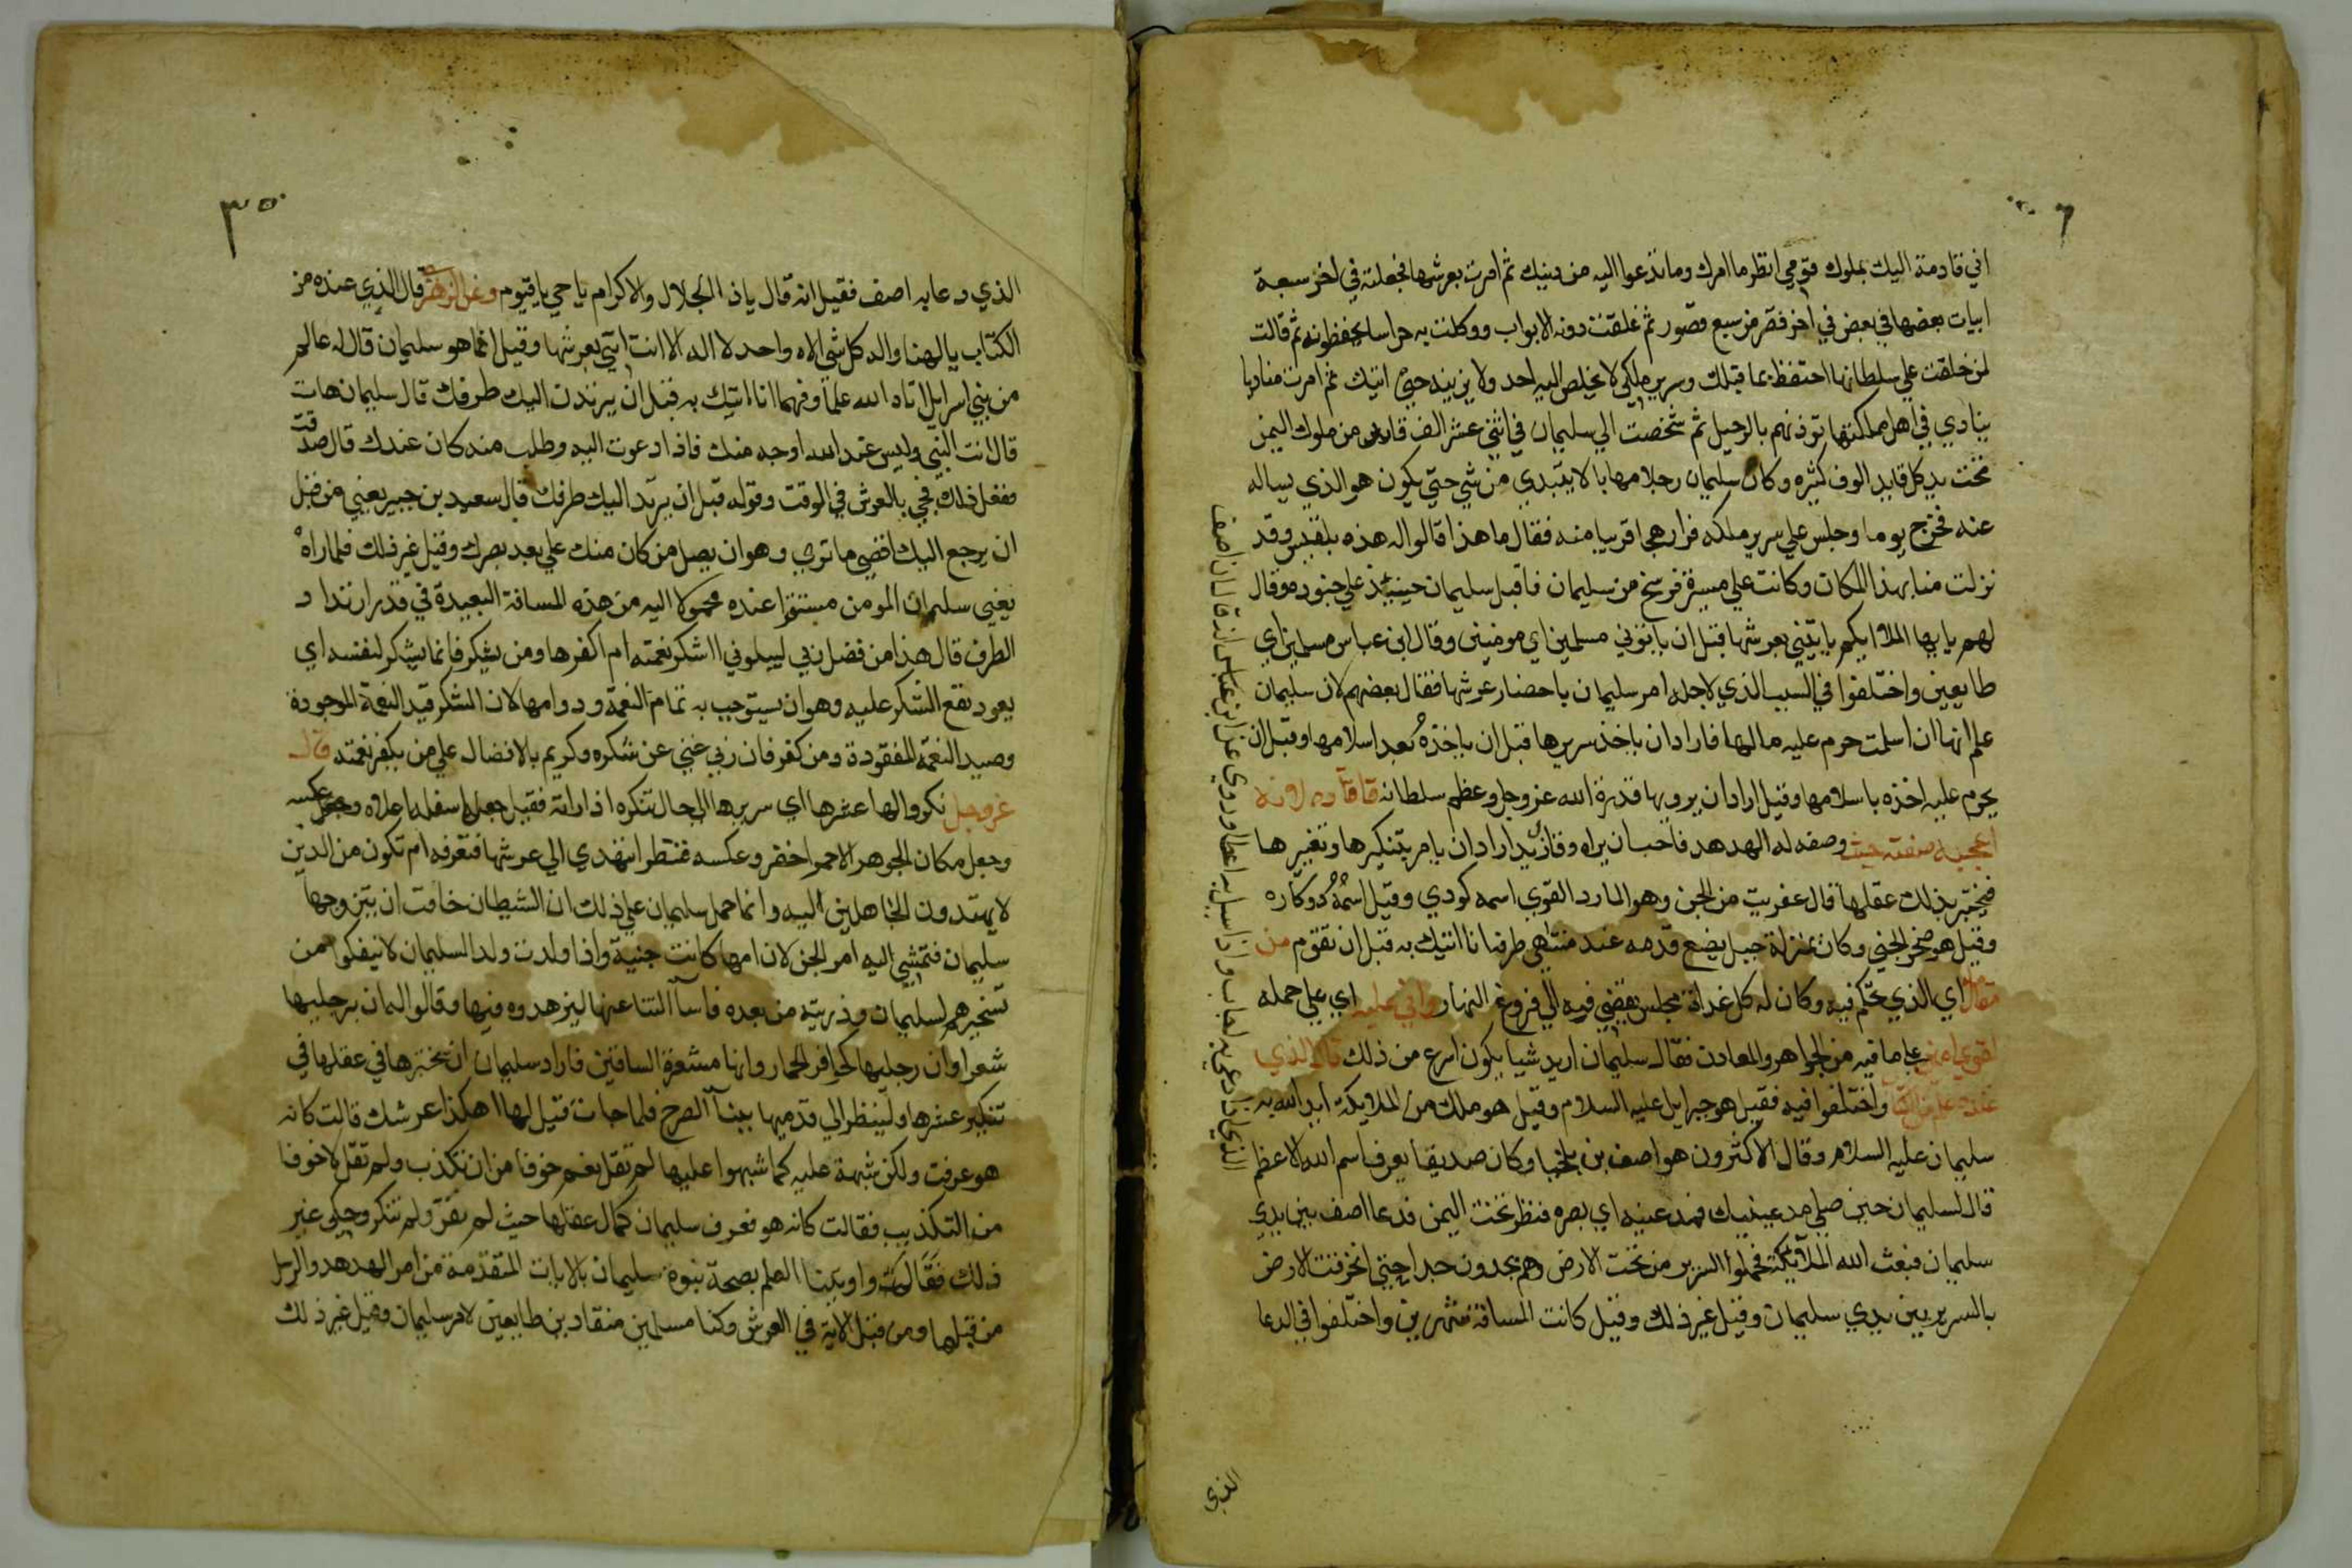 اني قادمة اليك بملوك قومي انظر ما امرك وما تدعوا اليه من دينك ثم امرت بعرشها فجعلته في اخر سبعة
ابيات بعضها في بعض في اخر قصر من سبع قصور ثم غلقت دونه الابواب ووكلت به حراسا يحفظونه ثم قالت
لمن خلفت علي سلطانها احتفظ بما قبلك وسرير ملكي لا يخلص اليه احد ولا يزينه حتي اتيك ثم امرت مناديا
ينادي في اهل مملكتها توذنهم بالرحيل ثم شخصت الي سليمان في اثني عشر الف قايد من ملوك اليمن
تحت يد كل قايد الوف كثيره وكان سليمان رجلا مهابا لا يبتدي من شي حتي يكون هو الذي يساله
عنه فخرج يوما وجلس علي سرير ملكه فراي رهجا قريبا منه فقال ما هذا قالوا له هذه بلقيس وقد
نزلت منا بهذا المكان وكانت علي مسيرة فرسخ من سليمان فاقبل سليمان حينيذ علي جنوده وقال
لهم يا ايها الملا ايكم ياتيني بعرشها قبل ان ياتوني مسلمين اي مومنين وقال ابن عباس مسلمين اي
طايعين واختلفوا في السبب الذي لاجله امر سليمان باحضار عرشها فقال بعضهم لان سليمان
علم انها ان اسلمت حرم عليه مالها فاراد ان ياخذ سريرها قبل ان ياخذه بعد اسلامها وقبل ان
يحرم عليه اخذه باسلامها وقيل اراد ان يريها قدرة الله عز وجل وعظم سلطانه قتادة لانه
اعجبته صفته حيث وصفه له الهدهد فاحب ان يراه وقال ابن زيد اراد ان يامر بتنكيرها وتغييرها
فيختبر بذلك عقلها قال عفريت من الجن وهو المارد القوي اسمه كودي وقيل اسمه دوكاره
وقيل هو صخر الجني وكان بمنزلة جبل يضع قدمه عند منتهي طرفه انا اتيك به قبل ان تقوم من
مقامك اي الذي تحكم فيه وكان له كل غداة مجلس يقضي فيه الي فروغ النهار واني عليه اي علي حمله
لقوي امين علي ما فيه من الجواهر والمعادن فقال سليمان اريد شيا يكون اسرع من ذلك قال الذي
عنده علم من الكتاب واختلفوا فيه فقيل هو جبرايل عليه السلام وقيل هو ملك من الملايكة ايد الله به
سليمان عليه السلام وقال الاكثرون هو اصف بن برخيا وكان صديقا يعرف اسم الله الاعظم
قال لسليمان حين صلي مد عينيك فمد عينيه اي بصره فنظر تحت اليمن فدعا اصف بين يدي
سليمان فبعث الله الملايكة فحملوا السرير من تحت الارض وهم يجدون جدا حتي انخرقت الارض
بالسرير بين يدي سليمان وقيل غير ذلك وقيل كانت المسافة شهرين واختلفوا في الدعا
الذي اذا دعي به اجاب واذا سيل به اعطا وروي عن ابن عباس انه قال ان اصف
الذي
٣٥
الذي دعا به اصف فقيل انه قال يا ذا الجلال والاكرام يا حي يا قيوم وعن الزهري قال الذي عنده من
الكتاب يا الهنا واله كل شي الاه واحد لا اله الا انت ايتني بعرشها وقيل انما هو سليمان قال له عالم
من بني اسرايل اتاه الله علما وفهما انا اتيك به قبل ان يرتد اليك طرفك قال سليمان هات
قال انت النبي وليس عند الله اوجه منك فاذا دعوت اليه وطلب منه كان عندك قال صدقت
ففعل ذلك فجي بالعرش في الوقت وقوله قبل ان يرتد اليك طرفك قال سعيد بن جبير يعني من قبل
ان يرجع اليك اقصي ما تري وهو ان يصل من كان منك علي بعد بصرك وقيل غير ذلك فلما راه
يعني سليمان المومن مستقرا عنده محمولا اليه من هذه المسافة البعيدة في قدر ارتداد
الطرف قال هذا من فضل ربي ليبلوني ااشكر نعمته ام اكفرها ومن يشكر فانما يشكر لنفسه اي
يعود نفع الشكر عليه وهو ان يستوجب به تمام النعمة ودوامها لان الشكر قيد النعمة الموجودة
وصيد النعمة المفقودة ومن كفر فان ربي غني عن شكره وكريم بالافضال علي من يكفر نعمته قال
عز وجل نكروا لها عرشها اي سريرها الي حال تنكره اذا راته فقيل جعل اسفله اعلاه وعكسه
وجعل مكان الجوهر الاحمر اخضر وعكسه فننظر اتهتدي الي عرشها فتعرفه ام تكون من الذين
لا يهتدون الجاهلين اليه وانما حمل سليمان علي ذلك ان الشيطان خافت ان يتزوجها
سليمان فتفشي اليه امر الجن لان امها كانت جنية واذا ولدت ولدا لسليمان لا ينفكوا من
تسخيرهم لسليمان وذريته من بعده فاساا الثنا عنها ليزهدوه فيها وقالوا له ان برجليها
شعرا وان رجليها كحافر الحمار وانها مشعرة الساقين فاراد سليمان ان يختبرها في عقلها في
تنكير عرشها ولينظر الي قدميها ببناا الصرح فلما جات قيل لها اهكذا عرشك قالت كانه
هو عرفت ولكن شبهة عليه كما شبهوا عليها لم تقل نعم خوفا من ان تكذب ولم تقل لا خوفا
من التكذيب فقالت كانه هو فعرف سليمان كمال عقلها حيث لم تقر ولم تنكر وحكي غير
ذلك فقالت واوتينا العلم بصحة نبوة سليمان بالايات المتقدمة من امر الهدهد والرسل
من قبلها ومن قبل الاية في العرش وكنا مسلمين منقادين طايعين لامر سليمان وقيل غير ذلك